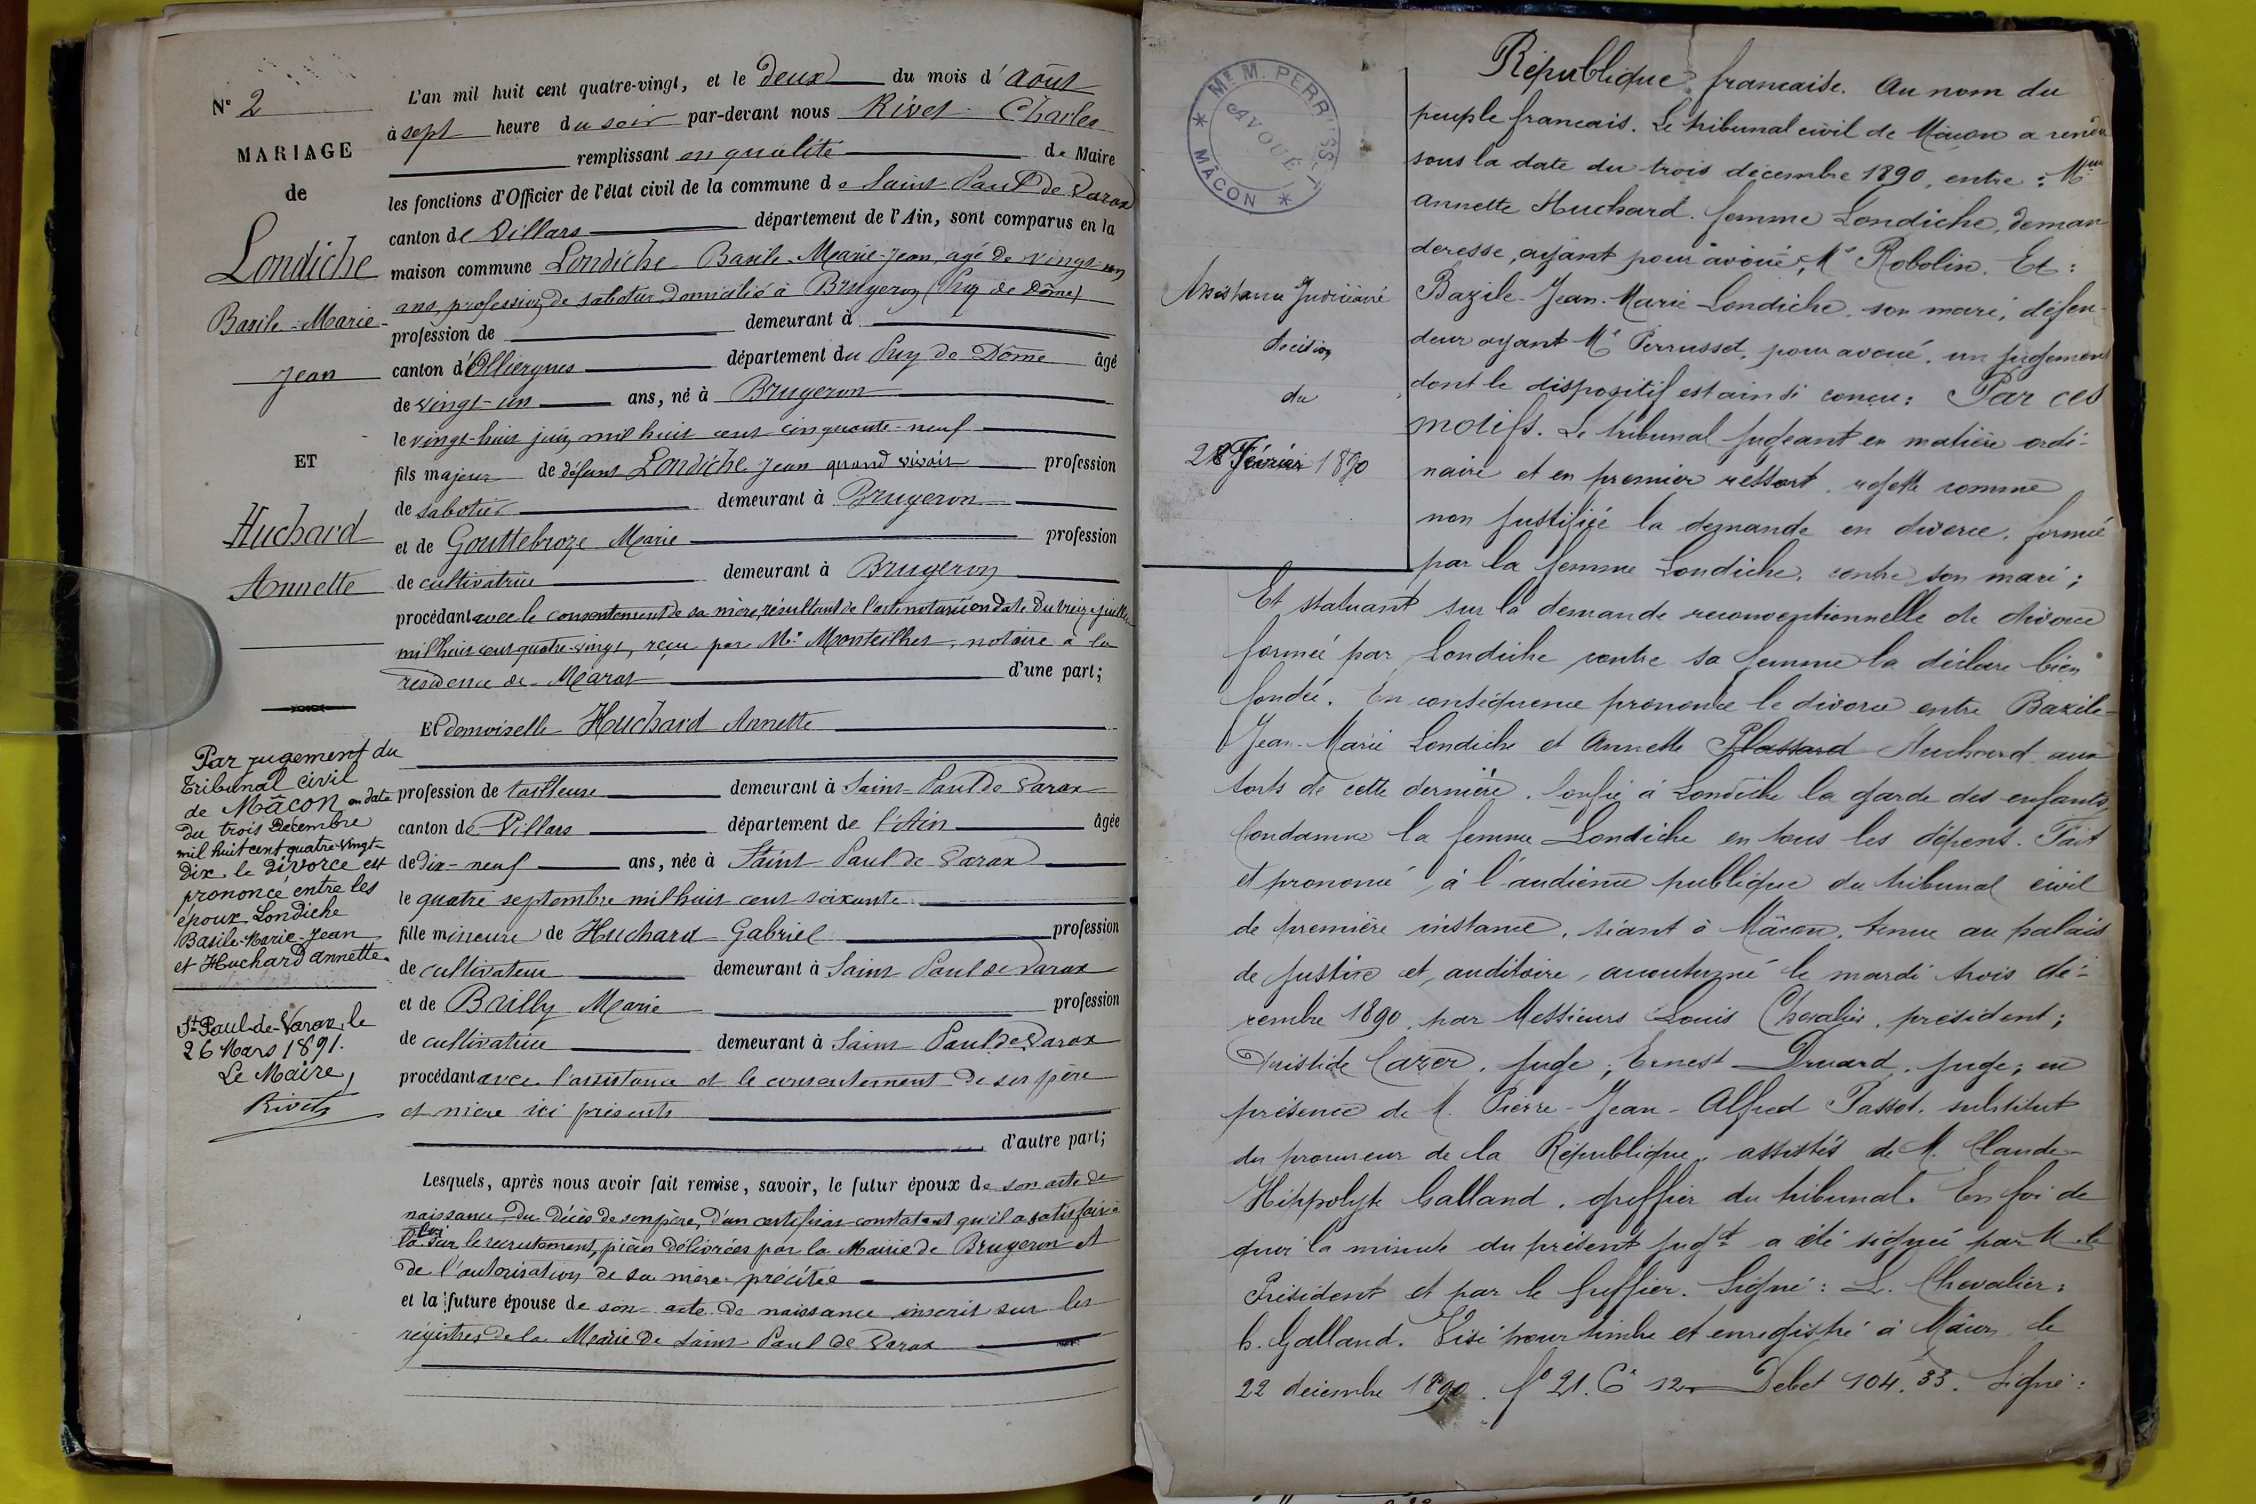 N° 2
MARIAGE
de
Londiche
Basile-Marie-
Jean
ET
Huchard
Annette
Par jugement du
Tribunal civil
de Mâcon en date
du trois Décembre
mil huit cent quatre-vingt-
dix le divorce est
prononcé entre les
époux Londiche
Basile-Marie-Jean
et Huchard Annette.
St Paul-de-Varax, le
26 Mars 1891.
Le Maire,
Rivet
L'an mil huit cent quatre-vingt, et le deux du mois d'août
à sept heure du soir par-devant nous Rivet Charles
remplissant en qualité de Maire
les fonctions d'Officier de l'état civil de la commune de Saint Paul de Varax
canton de Villars département de l'Ain, sont comparus en la
maison commune Londiche Basile-Marie-Jean, agé de vingt-un
ans, profession de sabotier domicilié à Brugeron (Puy de Dôme)
profession de demeurant à
canton d'Olliergues département du Puy de Dôme âgé
de vingt-un ans, né à Brugeron
le vingt-huit juin mil huit cent cinquante-neuf
fils majeur de défunt Londiche Jean quand vivait profession
de sabotier demeurant à Brugeron
et de Gouttebroze Marie profession
de cultivatrice demeurant à Brugeron
procédant avec le consentement de sa mère, résultant de l'acte notarié en date du treize juillet
mil huit cent quatre-vingt, reçu par Me Monteilhet, notaire à la
résidence de Marat d'une part;
Et demoiselle Huchard Annette
profession de tailleuse demeurant à Saint-Paul de Varax
canton de Villars département de l'Ain âgée
de dix-neuf ans, née à Saint Paul de Varax
le quatre septembre mil huit cent soixante
fille mineure de Huchard Gabriel profession
de cultivateur demeurant à Saint Paul de Varax
et de Bailly Marie profession
de cultivatrice demeurant à Saint Paul de Varax
procédant avec l'assistance et le consentement de ses père
et mère ici présents
d'autre part;
Lesquels, après nous avoir fait remise, savoir, le futur époux de son acte de
naissance, du décès de son père, d'un certificat constatant qu'il a satisfait à
la loi sur le recrutement, pièces délivrées par la Mairie de Brugeron et
de l'autorisation de sa mère précitée
et la future épouse de son acte de naissance inscrit sur les
régistres de la Mairie de Saint Paul de Varax
Me M. PERRUSSET
AVOUÉ
* MÂCON *
Assistance Judiciaire
décision
du
28 Février 1890
République francaise. Au nom du
peuple francais. Le tribunal civil de Mâcon a rendu
sous la date du trois décembre 1890, entre : Mme
Annette Huchard. femme Londiche, deman
deresse, ayant pour avoué, Me Robolin. Et :
Bazile-Jean-Marie Londiche, son mari, défen-
deur ayant Me Perrusset, pour avoué, un jugement
dont le dispositif est ainsi conçu : Par ces
motifs. Le tribunal jugeant en matière ordi-
naire et en premier ressort, rejette comme
non justifiée la demande en divorce, formée
par la femme Londiche, contre son mari ;
Et statuant sur la demande reconventionnelle de divorce
formée par Londiche contre sa femme la déclare bien
fondée. En conséquence prononce le divorce entre Bazile-
Jean-Marie Londiche et Annette Plassard Huchard aux
torts de cette dernière. Confie à Londiche la garde des enfants
Condamne la femme Londiche en tous les dépens. Fait
et prononcé, à l'audience publique du tribunal civil
de première instance, séant à Mâcon, tenue au palais
de justice et, auditoire, accoutumé le mardi trois dé-
cembre 1890, par Messieurs Louis Chevalier, président ;
Aristide Cazer, juge ; Ernest Druard, juge ; en
présence de M. Pierre-Jean-Alfred Passot, substitut
du procureur de la République, assistés de M. Claude-
Hippolyte Galland, greffier du tribunal. En foi de
quoi la minute du présent jugt a été signée par M. le
Président et par le Greffier. Signé : L. Chevalier :
h. Galland. Visé pour timbre et enregistré à Mâcon le
22 décembre 1890. fo 21. Ce 12 Debet 104.33. Signé :